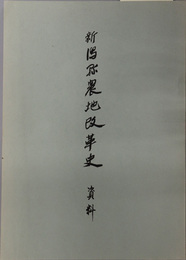 新潟県農地改革史 資料